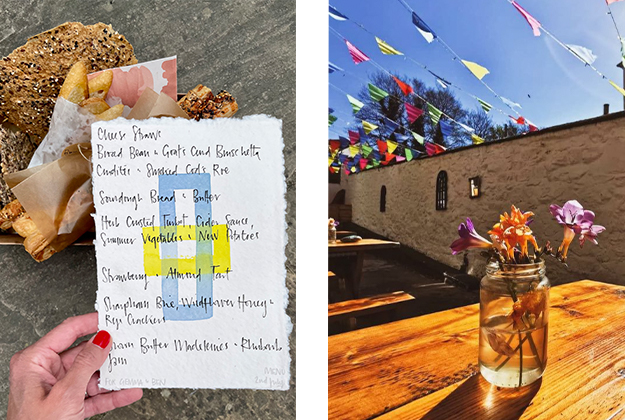 Cheese Straws
Broad Bean + Goat's Curd Bruschetta
Crudités + Smoked Cod's Roe
Sourdough Bread + Butter
Herb Crusted Turbot, Cider Sauce,
Summer Vegetables + New Potatoes
Strawberry + Almond Tart
Sharpham Brie, Wildflower Honey +
Rye Crackers
Brown Butter Madeleines + Rhubarb
Jam
MENU
FOR GEMMA + BEN